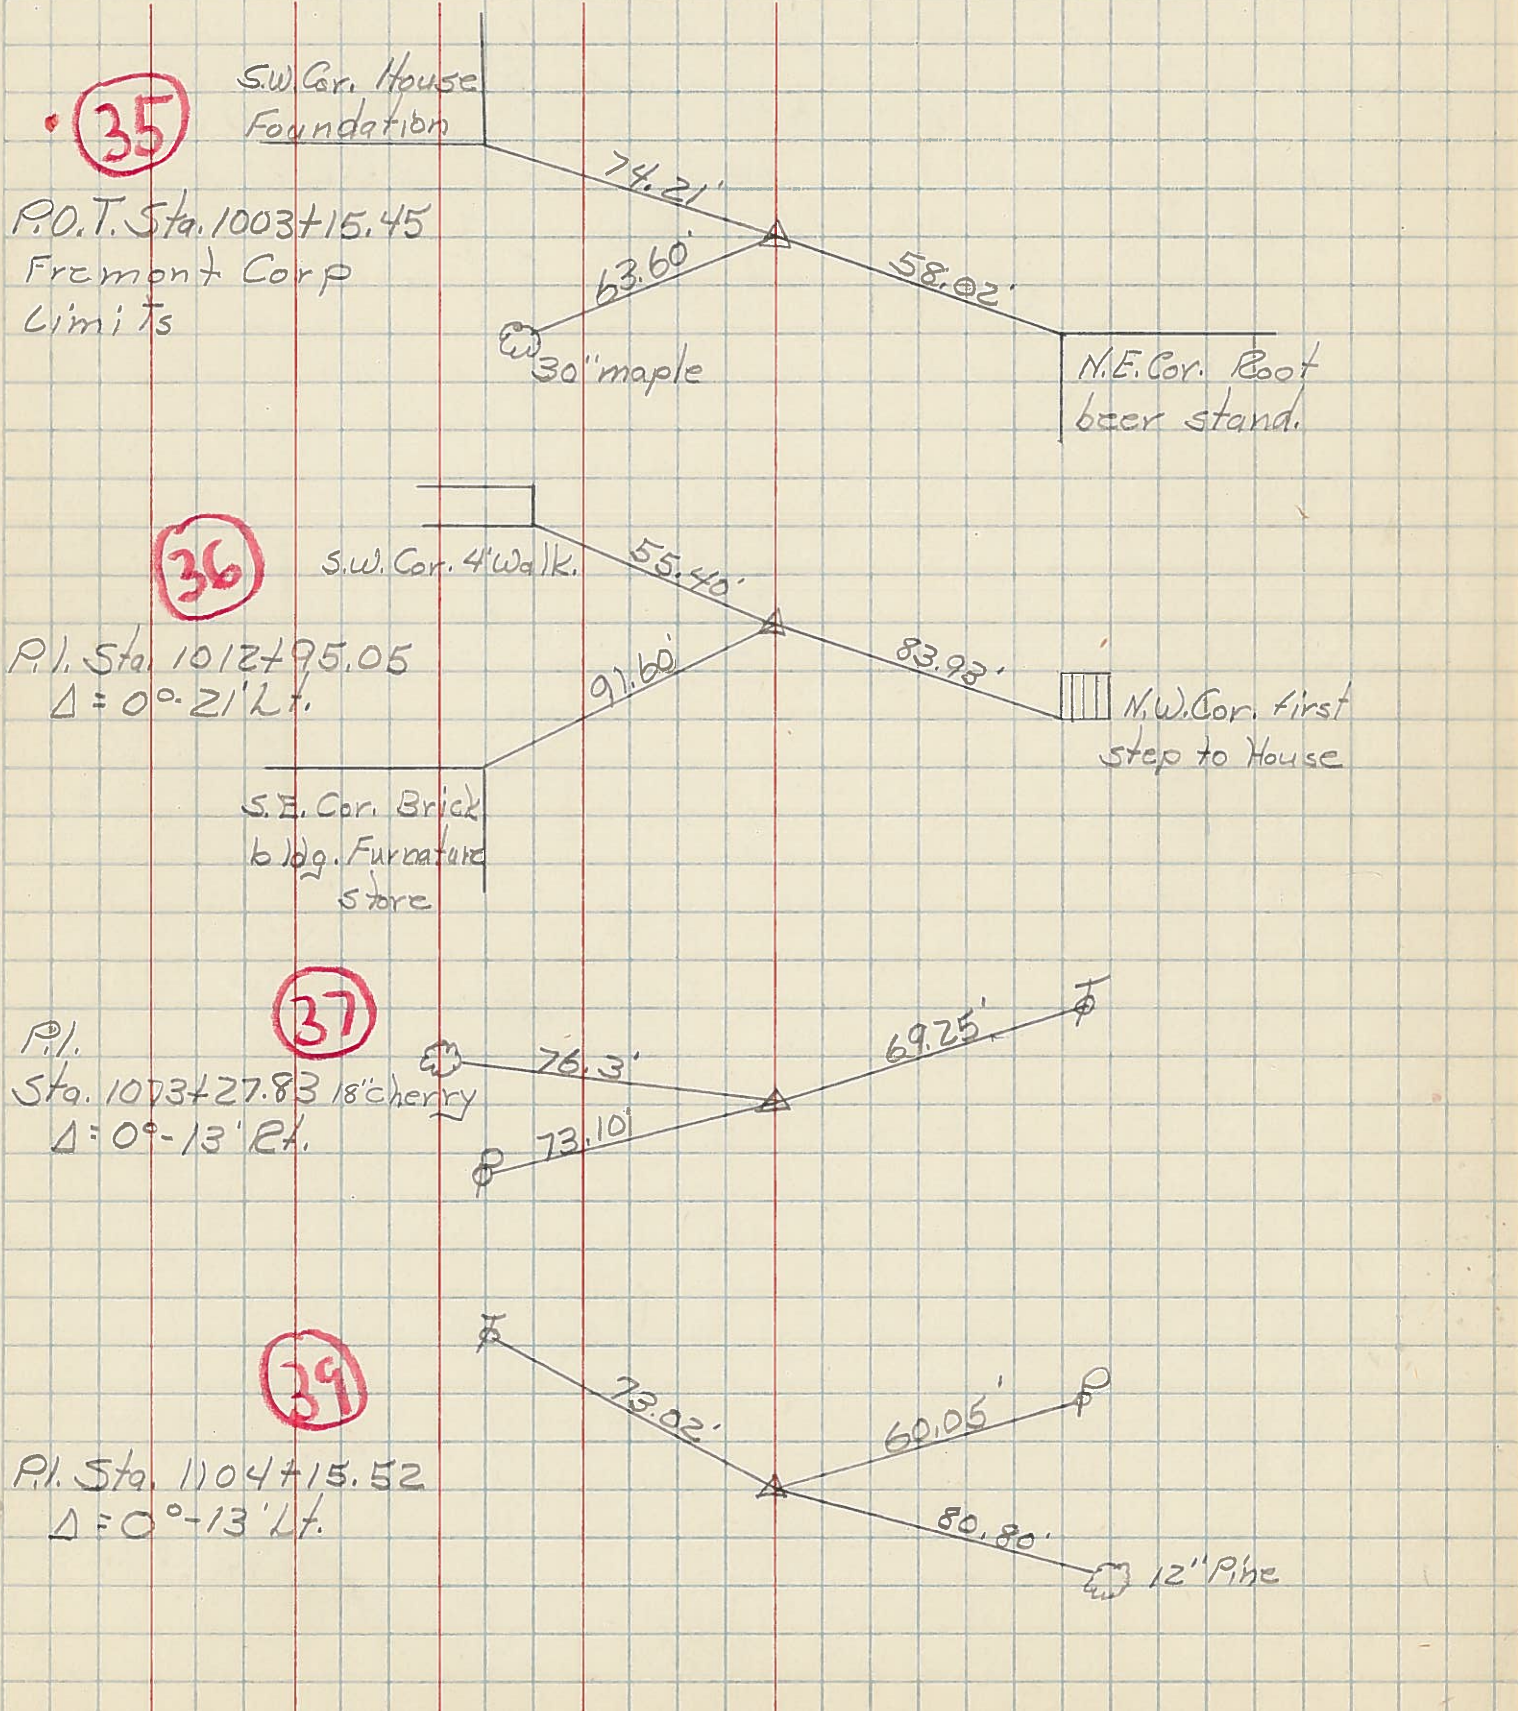 35
S.W. Cor. House
Foundation
74.21'
P.O.T. Sta. 1003+15.45
Fremont Corp
Limits
63.60'
58.02'
30" maple
N.E. Cor. Root
beer stand.
36
S.W. Cor. 4' Walk.
55.40'
P.I. Sta. 1012+95.05
Δ = 0°-21' Lt.
91.60'
83.93'
N.W. Cor. first
step to House
S.E. Cor. Brick
bldg. Furnature
store
37
P.I.
Sta. 1073+27.83
Δ = 0°-13' Rt.
18" cherry
76.3'
69.25'
73.10'
39
73.02'
60.05'
P.I. Sta. 1104+15.52
Δ = 0°-13' Lt.
80.80'
12" Pine